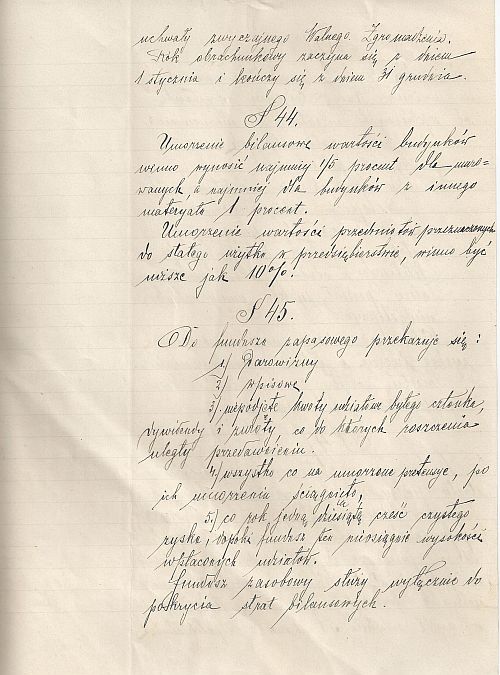 uchwały zwyczajnego Walnego Zgromadzenia.
Rok obrachunkowy zaczyna się z dniem
1 stycznia i kończy się z dniem 31 grudzia.
§ 44.
Umorzenie bilansowe wartości budynków
winno wynosić najmniej 1/5 procent dla muro-
wanych, a najmniej dla budynków z innego
materyału 1 procent.
Umorzenie wartości przedmiotów przeznaczonych
do stałego użytku w przedsiębierstwie, winno być
niższe jak 10%.
§ 45.
Do funduszu zapasowego przekazuje się:
1) Darowizny
2) wpisowe
3) niepodjęte kwoty udziałów byłego członka,
dywidendy i zwroty co do których roszczenia
uległy przedawnieniu.
4) wszystko co na umorzone pretensye, po
ich umorzeniu ściągnięto,
5) co rok jedną dziesiątą część czystego
zysku, dopóki fundusz ten nieosiągnie wysokości
wpłaconych udziałów.
Fundusz zasobowy służy wyłącznie do
pokrycia strat bilansowych.